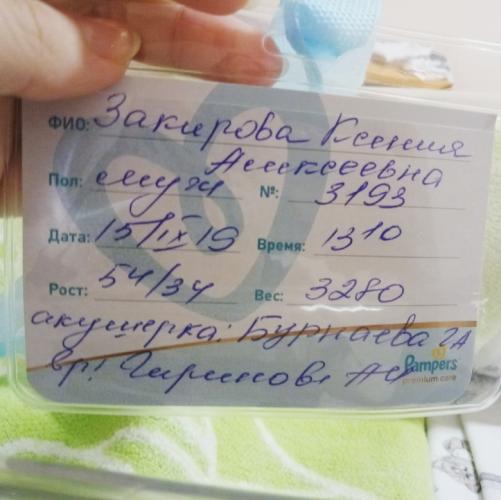 ФИО: Закирова Ксения
Алексеевна
Пол: муж №: 3193
Дата: 15/IX 19 Время: 13 10
Рост: 54/34 Вес: 3280
акушерка: Бурнаева ГА
вр:
Pampers
premium care